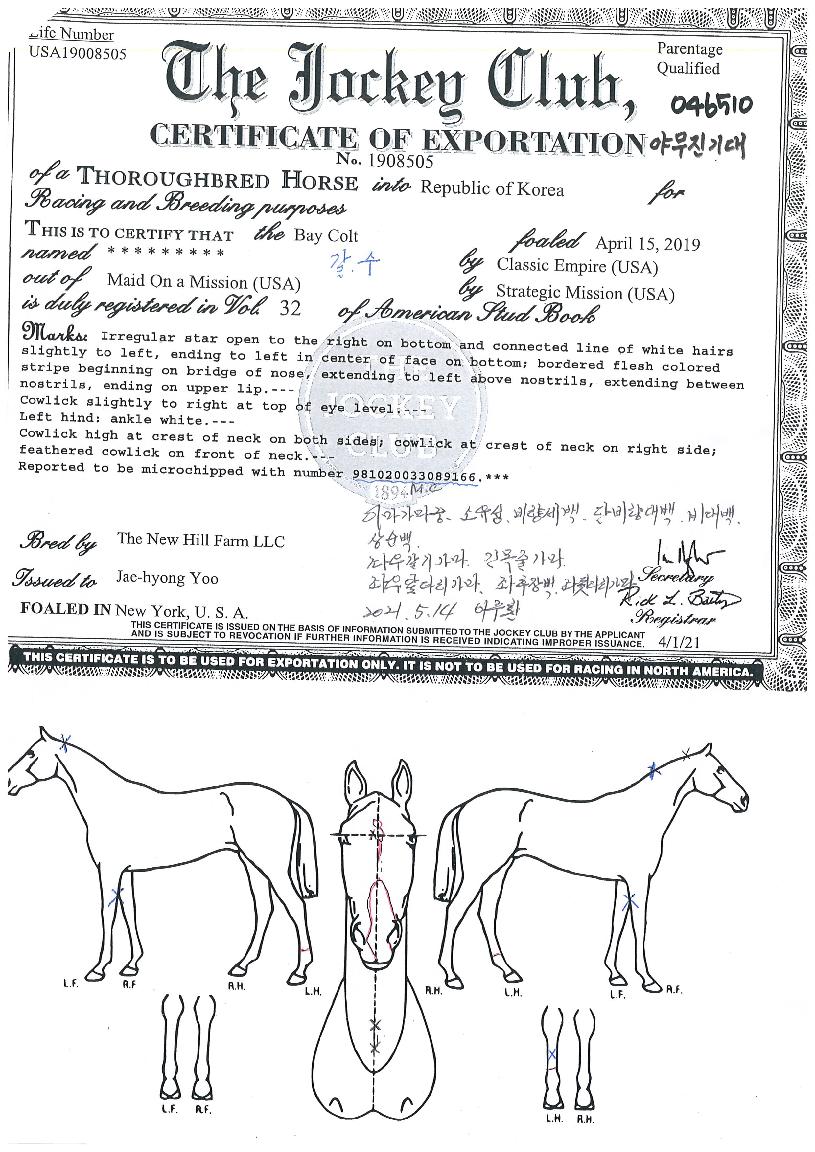 Life Number
USA19008505
Parentage
Qualified
The Jockey Club,
046510
CERTIFICATE OF EXPORTATION 야무진기대
No. 1908505
of a THOROUGHBRED HORSE into Republic of Korea for
Racing and Breeding purposes
THIS IS TO CERTIFY THAT the Bay Colt foaled April 15, 2019
named * * * * * * * * * 갈.수 by Classic Empire (USA)
out of Maid On a Mission (USA) by Strategic Mission (USA)
is duly registered in Vol. 32 of American Stud Book
Marks: Irregular star open to the right on bottom and connected line of white hairs
slightly to left, ending to left in center of face on bottom; bordered flesh colored
stripe beginning on bridge of nose, extending to left above nostrils, extending between
nostrils, ending on upper lip.---
Cowlick slightly to right at top of eye level.---
Left hind: ankle white.---
Cowlick high at crest of neck on both sides; cowlick at crest of neck on right side;
feathered cowlick on front of neck.---
Reported to be microchipped with number 981020033089166.***
THE
JOCKEY
CLUB
1894
M.C
소유성. 비량세백. 단비량대백. 비대백.
상순백.
좌우갈기가마. 긴목줄가마.
좌우앞다리가마. 좌후장백.
Bred by The New Hill Farm LLC
Issued to Jae-hyong Yoo
Secretary
2021. 5. 14
Registrar
FOALED IN New York, U. S. A.
THIS CERTIFICATE IS ISSUED ON THE BASIS OF INFORMATION SUBMITTED TO THE JOCKEY CLUB BY THE APPLICANT
AND IS SUBJECT TO REVOCATION IF FURTHER INFORMATION IS RECEIVED INDICATING IMPROPER ISSUANCE. 4/1/21
THIS CERTIFICATE IS TO BE USED FOR EXPORTATION ONLY. IT IS NOT TO BE USED FOR RACING IN NORTH AMERICA.
L.F. R.F R.H. L.H. R.H. L.H. L.F. R.F.
L.F. R.F. L.H. R.H.